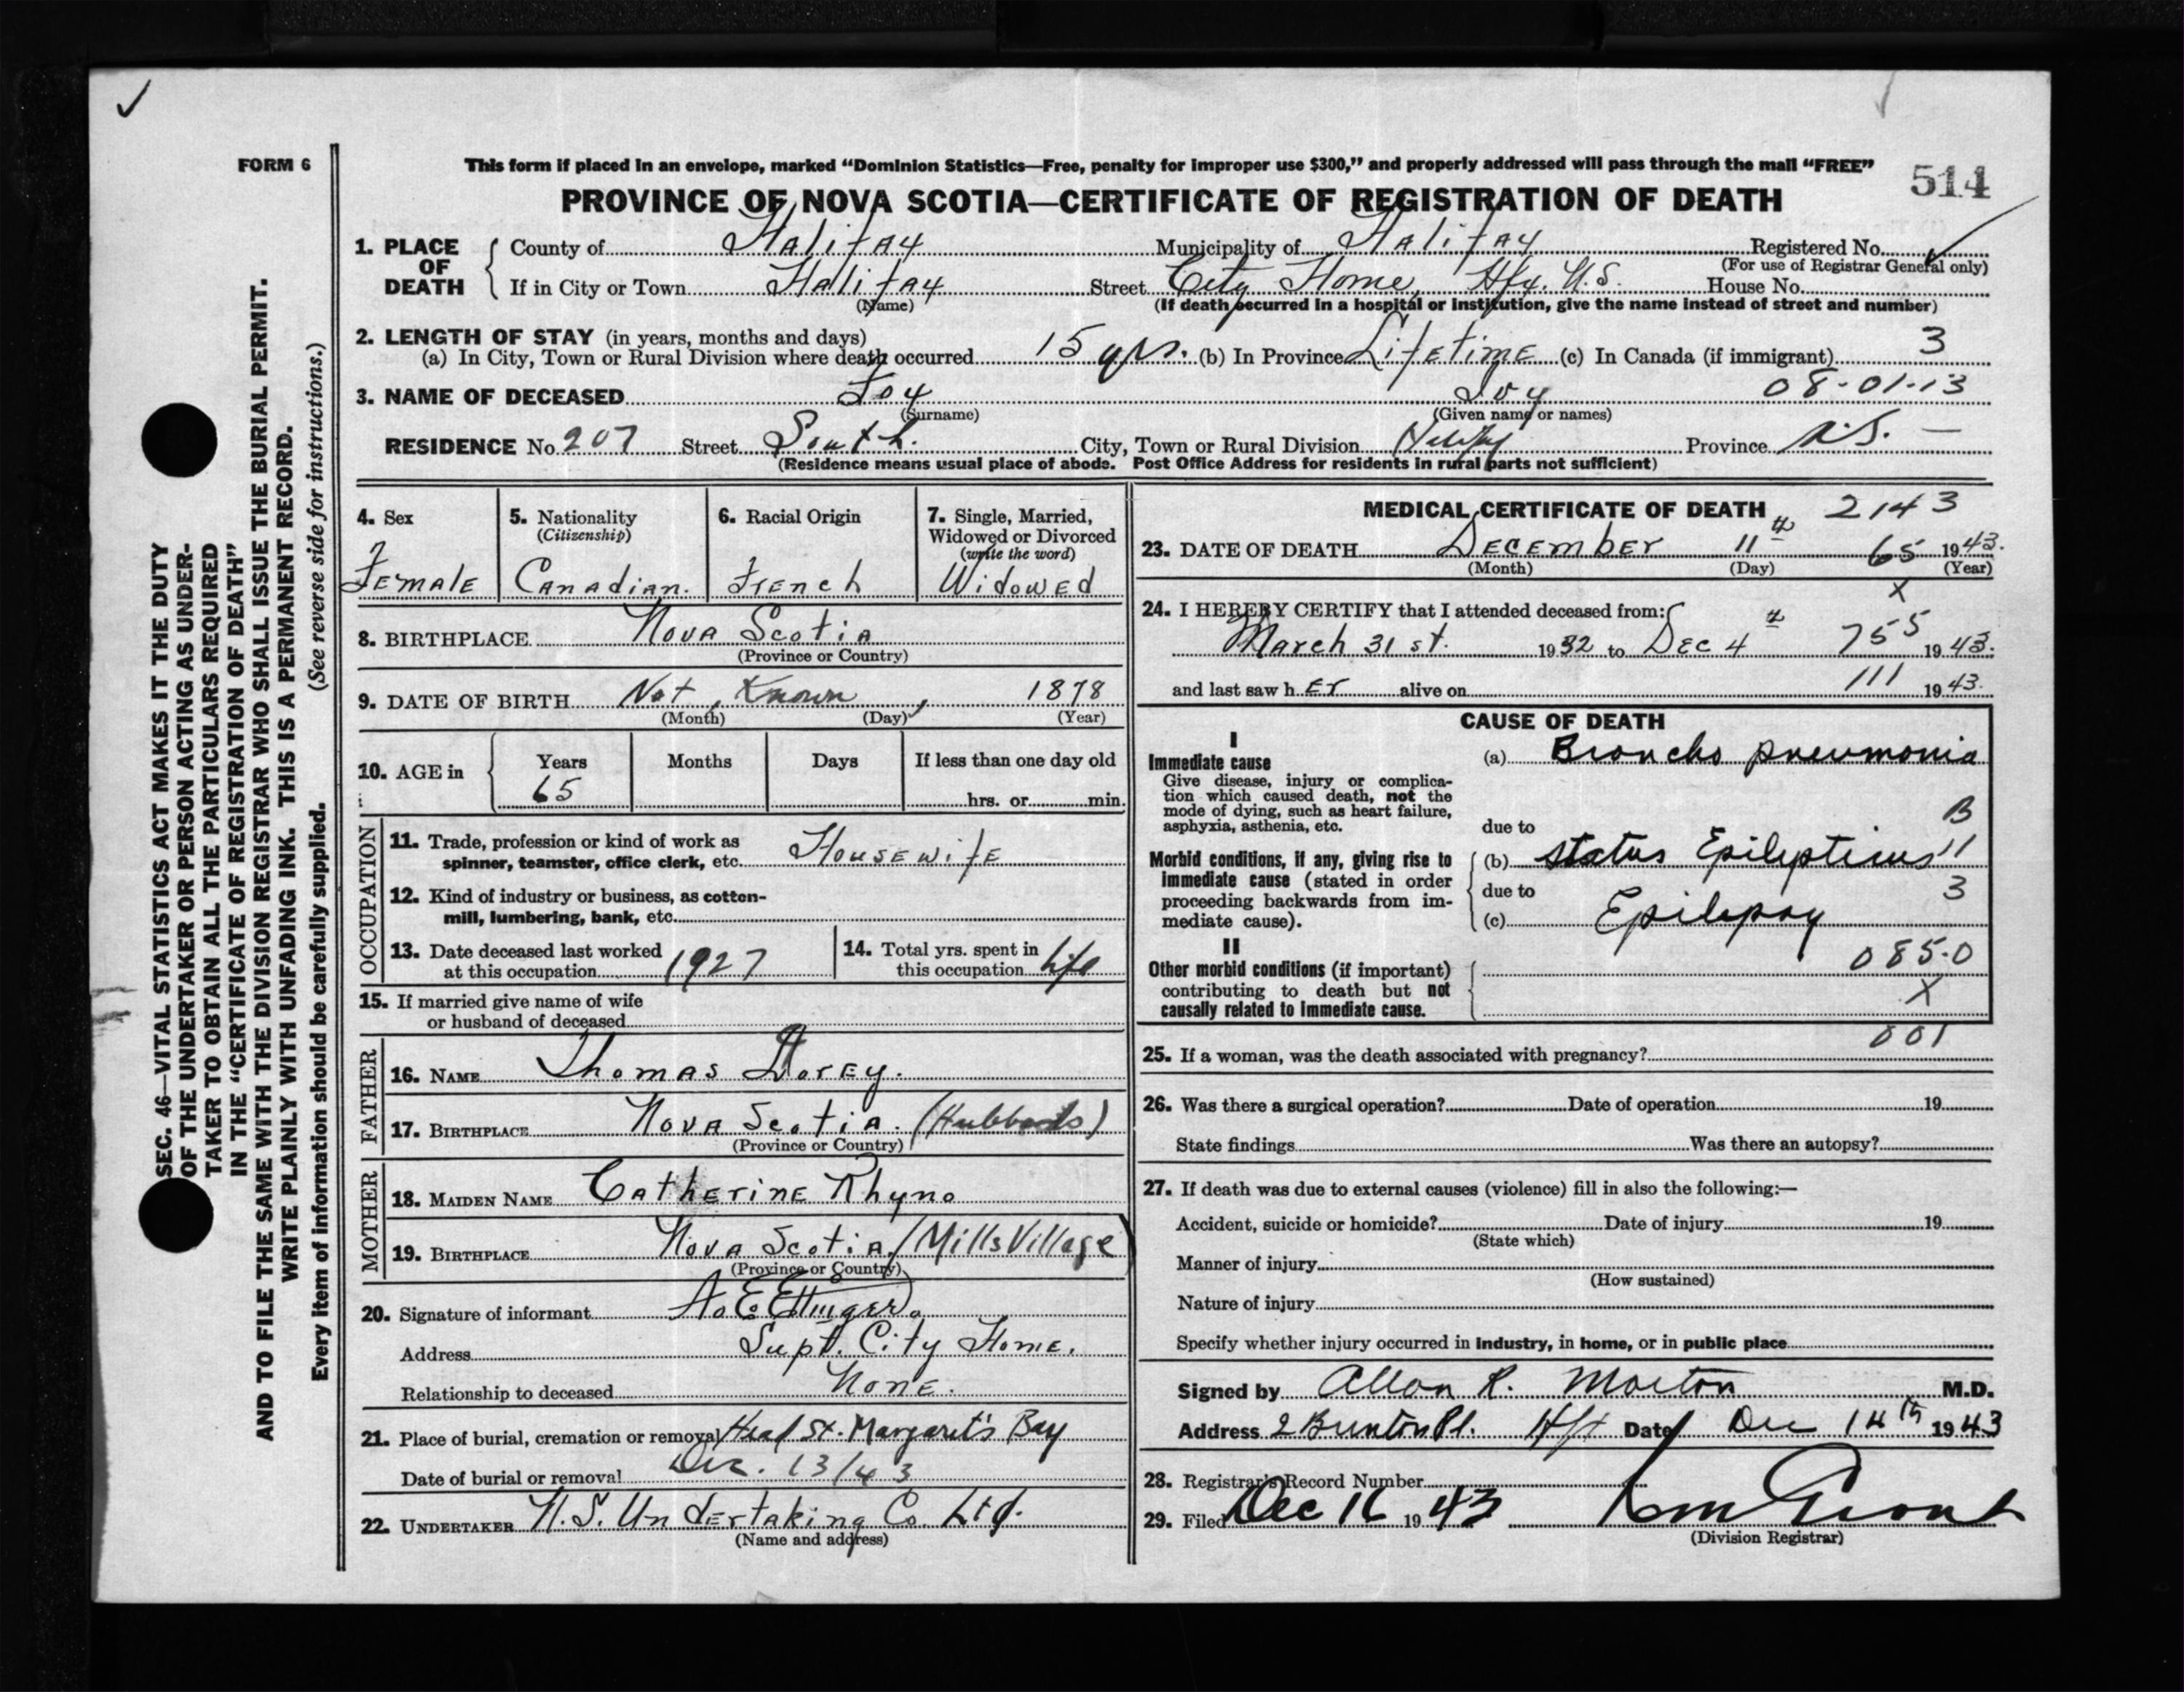 FORM 6
This form if placed in an envelope, marked “Dominion Statistics—Free, penalty for improper use $300,” and properly addressed will pass through the mail “FREE”
514
PROVINCE OF NOVA SCOTIA—CERTIFICATE OF REGISTRATION OF DEATH
1. PLACE OF DEATH County of Halifax Municipality of Halifax Registered No.
(For use of Registrar General only)
If in City or Town Halifax Street City Home, Hfx. N.S. House No.
(Name) (If death occurred in a hospital or institution, give the name instead of street and number)
2. LENGTH OF STAY (in years, months and days)
(a) In City, Town or Rural Division where death occurred 15 yrs. (b) In Province Lifetime (c) In Canada (if immigrant) 3
3. NAME OF DECEASED 08-01-13
(Surname) (Given name or names)
RESIDENCE No. 207 Street South. City, Town or Rural Division Halifax Province N.S. —
(Residence means usual place of abode. Post Office Address for residents in rural parts not sufficient)
4. Sex
Female
5. Nationality
(Citizenship)
Canadian.
6. Racial Origin
French
7. Single, Married,
Widowed or Divorced
(write the word)
Widowed
8. BIRTHPLACE Nova Scotia
(Province or Country)
9. DATE OF BIRTH Not Known, 1878
(Month) (Day) (Year)
10. AGE in Years Months Days If less than one day old
65 hrs. or min.
OCCUPATION
11. Trade, profession or kind of work as
spinner, teamster, office clerk, etc. Housewife
12. Kind of industry or business, as cotten-
mill, lumbering, bank, etc.
13. Date deceased last worked
at this occupation 1927
14. Total yrs. spent in
this occupation Life
15. If married give name of wife
or husband of deceased
FATHER
16. NAME Thomas Dorey.
17. BIRTHPLACE Nova Scotia. (Hubbards)
(Province or Country)
MOTHER
18. MAIDEN NAME Catherine Rhyno
19. BIRTHPLACE Nova Scotia (Mills Village)
(Province or Country)
20. Signature of informant A. E. Ettinger.
Address Supt. City Home.
Relationship to deceased None.
21. Place of burial, cremation or removal Head St. Margaret's Bay
Date of burial or removal Dec. 13/43
22. UNDERTAKER N.S. Undertaking Co. Ltd.
(Name and address)
MEDICAL CERTIFICATE OF DEATH 2143
23. DATE OF DEATH December 11th 65 1943.
(Month) (Day) (Year)
X
24. I HEREBY CERTIFY that I attended deceased from:
March 31st. 1932 to Dec 4th 755 1943.
and last saw her alive on 111 1943.
CAUSE OF DEATH
I
Immediate cause
Give disease, injury or complica-
tion which caused death, not the
mode of dying, such as heart failure,
asphyxia, asthenia, etc.
(a) Broncho pneumonia
B
due to
Morbid conditions, if any, giving rise to
immediate cause (stated in order
proceeding backwards from im-
mediate cause).
(b) Status Epilepticus 11
due to 3
(c) Epilepsy
II
Other morbid conditions (if important)
contributing to death but not
causally related to immediate cause.
085.0
X
001
25. If a woman, was the death associated with pregnancy?
26. Was there a surgical operation? Date of operation 19
State findings Was there an autopsy?
27. If death was due to external causes (violence) fill in also the following:—
Accident, suicide or homicide? Date of injury 19
(State which)
Manner of injury
(How sustained)
Nature of injury
Specify whether injury occurred in industry, in home, or in public place
Signed by Allan R. Morton M.D.
Address 2 Brunton Pl. Hfx Date Dec 14th 1943
28. Registrar's Record Number
29. Filed Dec 16 1943
(Division Registrar)
SEC. 46—VITAL STATISTICS ACT MAKES IT THE DUTY
OF THE UNDERTAKER OR PERSON ACTING AS UNDER-
TAKER TO OBTAIN ALL THE PARTICULARS REQUIRED
IN THE “CERTIFICATE OF REGISTRATION OF DEATH”
AND TO FILE THE SAME WITH THE DIVISION REGISTRAR WHO SHALL ISSUE THE BURIAL PERMIT.
WRITE PLAINLY WITH UNFADING INK. THIS IS A PERMANENT RECORD.
Every item of information should be carefully supplied. (See reverse side for instructions.)